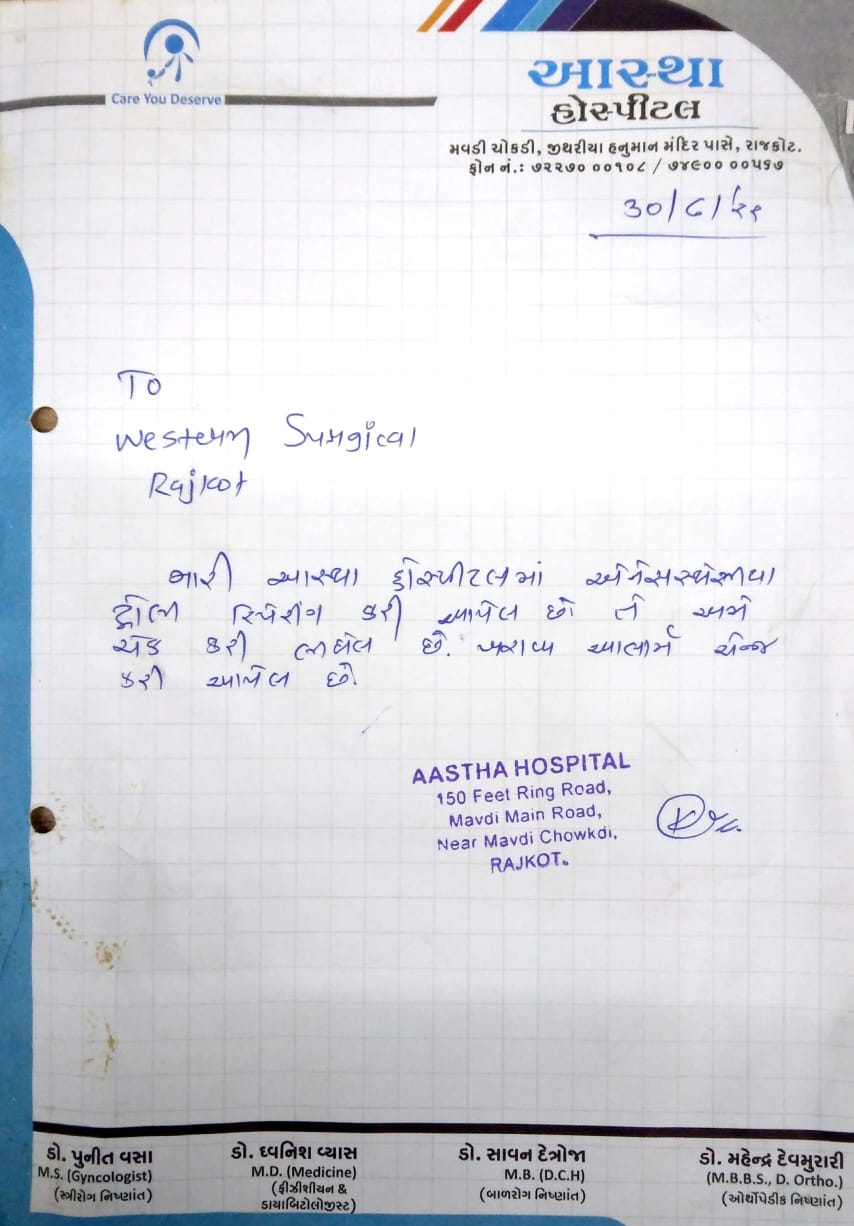 Care You Deserve
આસ્થા
હોસ્પીટલ
મવડી ચોકડી, જીથરીયા હનુમાન મંદિર પાસે, રાજકોટ.
ફોન નં.: ૭૨૨૭૦ ૦૦૧૦૮ / ૭૪૯૦૦ ૦૦૫૬૭
To
Western Surgical
Rajkot
મારી આસ્થા હોસ્પીટલમાં એનેસસ્થેસીયા
ટ્રોલી રિપેરીંગ કરી આપેલ છે તે અમે
ચેક કરી લીધેલ છે. ખરાબ આલાર્મ ચેન્જ
કરી આપેલ છે.
AASTHA HOSPITAL
150 Feet Ring Road,
Mavdi Main Road,
Near Mavdi Chowkdi,
RAJKOT.
ડો. પુનીત વસા
M.S. (Gyncologist)
(સ્ત્રીરોગ નિષ્ણાંત)
ડો. ધ્વનિશ વ્યાસ
M.D. (Medicine)
(ફીઝીશીયન &
ડાયાબિટોલોજીસ્ટ)
ડો. સાવન દેત્રોજા
M.B. (D.C.H)
(બાળરોગ નિષ્ણાંત)
ડો. મહેન્દ્ર દેવમુરારી
(M.B.B.S., D. Ortho.)
(ઓર્થોપેડીક નિષ્ણાંત)